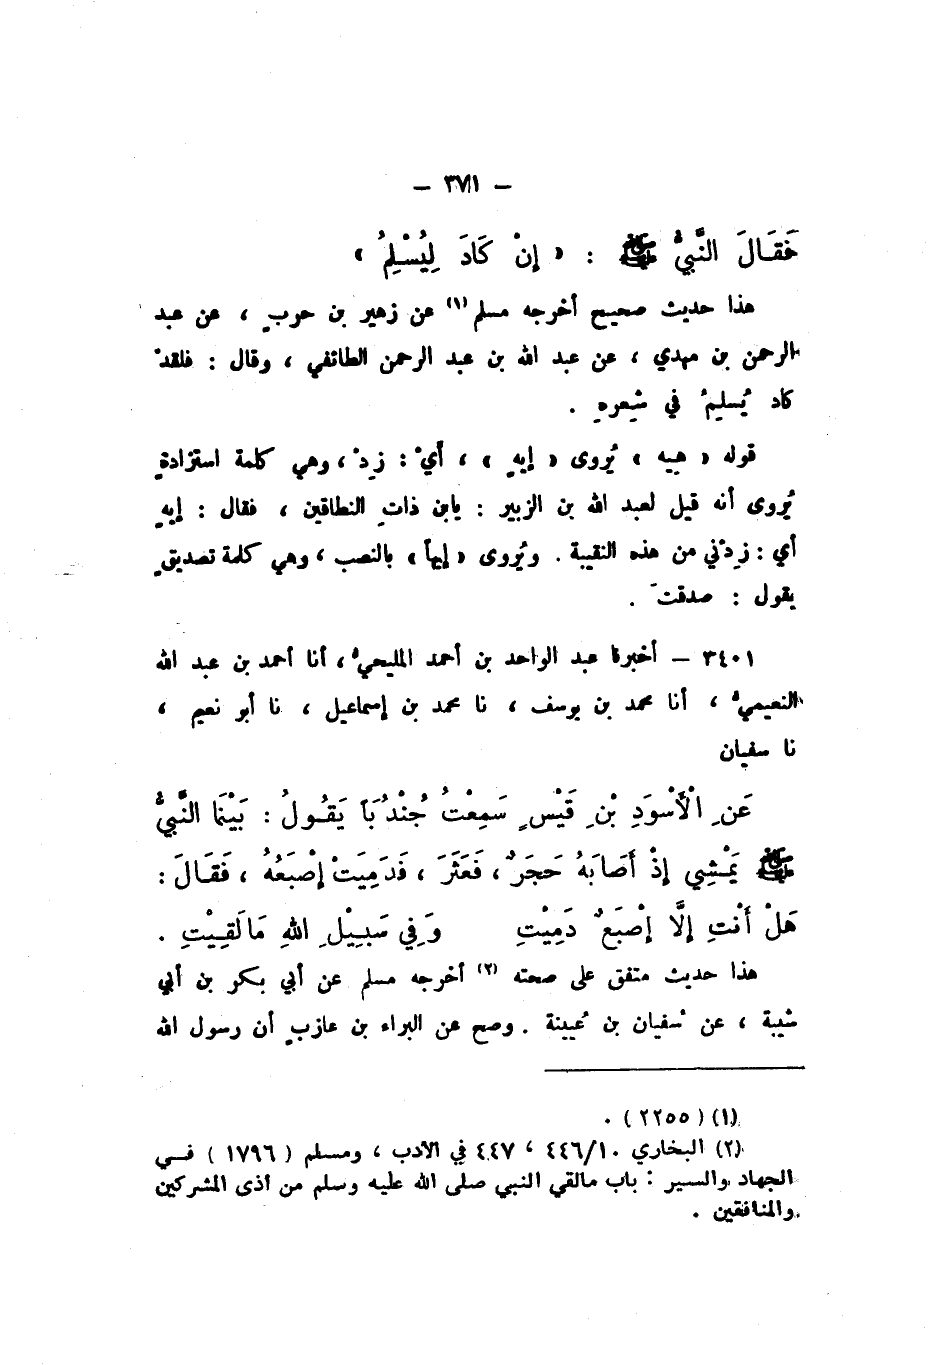 — ٣٧١ —
فَقَالَ النَّبيُّ ﷺ : « إِنْ كَادَ لِيُسْلِمُ »
هذا حديث صحيح أخرجه مسلم (١) عن زهير بن حربٍ ، عن عبد
الرحمن بن مهدي ، عن عبد الله بن عبد الرحمن الطائفي ، وقال : فلقدْ
كاد يُسلِمُ في شِعرِهِ .
قوله « هِيِه » يُروى « إِيهٍ » ، أَيْ : زِدْ ، وهي كلمة استزادةٍ
يُروى أنه قيل لعبد الله بن الزبير : يابن ذاتِ النطاقين ، فقال : إِيهٍ
أي : زِدْني من هذه النقيبة . ويُروى « إِيهاً » بالنصب ، وهي كلمة تصديقٍ
يقول : صدقتَ .
٣٤٠١ — أخبرنا عبد الواحد بن أحمد المليحيُّ ، أنا أحمد بن عبد الله
النعيميُّ ، أنا محمد بن يوسف ، نا محمد بن إسماعيل ، نا أبو نعيم ،
نا سفيان
عَنِ الْأَسْوَدِ بْنِ قَيْسٍ سَمِعْتُ جُنْدُبَاً يَقُولُ : بَيْنَمَا النَّبيُّ
ﷺ يَمْشِي إِذْ أَصَابَهُ حَجَرٌ ، فَعَثَرَ ، فَدَمِيَتْ إِصْبَعُهُ ، فَقَالَ :
هَلْ أَنْتِ إِلَّا إِصْبَعٌ دَمِيْتِ وَفِي سَبِيْلِ اللهِ مَالَقِيْتِ .
هذا حديث متفق على صحته (٢) أخرجه مسلم عن أبي بكر بن أبي
شيبة ، عن سُفيان بن عُيينة . وصح عن البراء بن عازبٍ أن رسول الله
(١) (٢٢٥٥) .
(٢) البخاري ٤٤٦/١٠ ، ٤٤٧ في الأدب ، ومسلم ( ١٧٩٦ ) في
الجهاد والسير : باب مالقي النبي صلى الله عليه وسلم من أذى المشركين
والمنافقين .